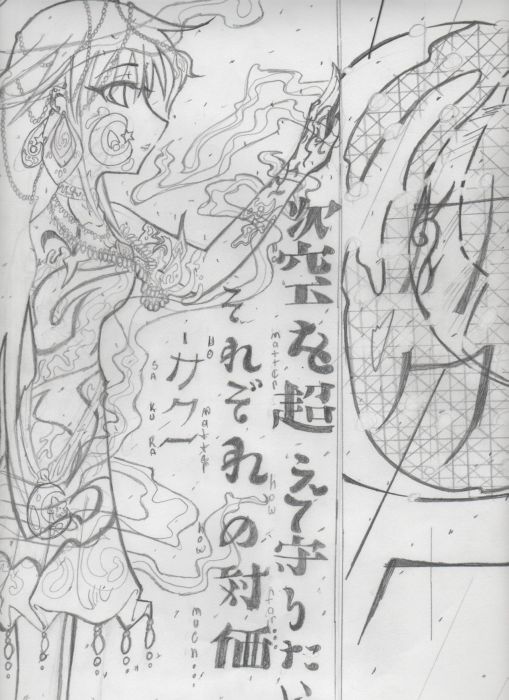 次空を超えて守りたい
matter how far...
それぞれの対価
NO matter how much...
ーサクー
SA KU RA